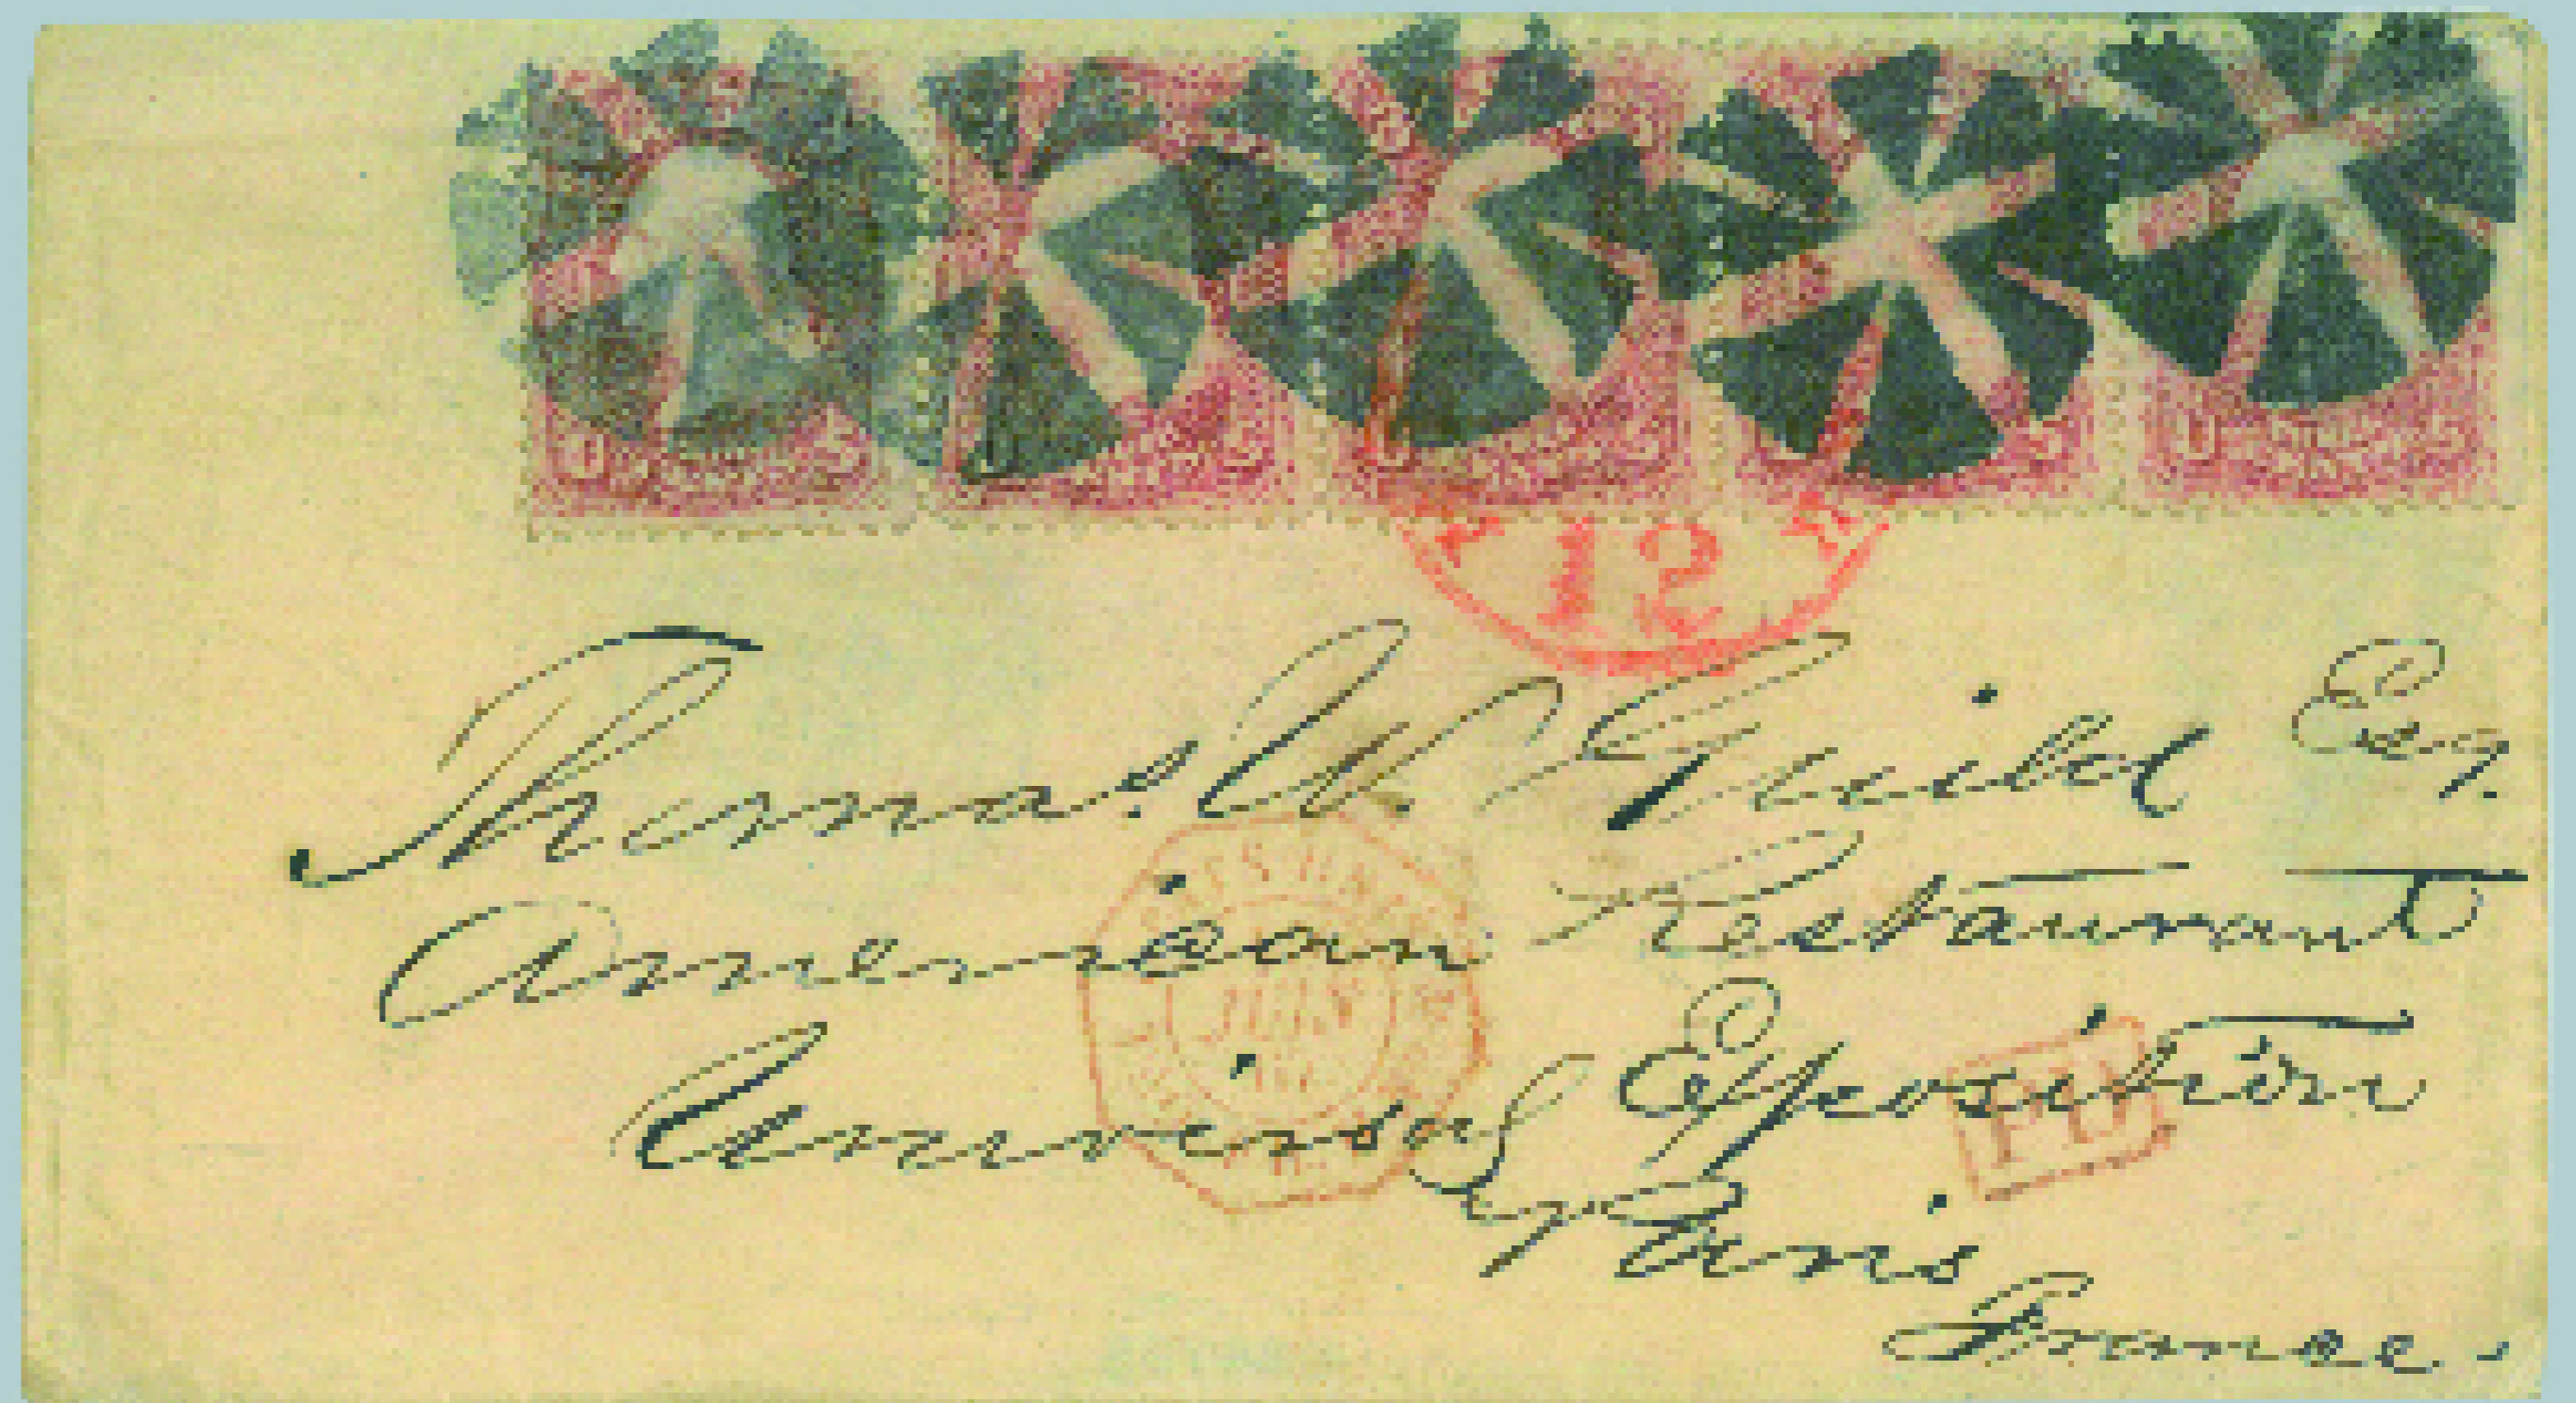 12
Thomas W Guild Esq.
American Restaurant
Universal Exposition
Paris
France.
PD